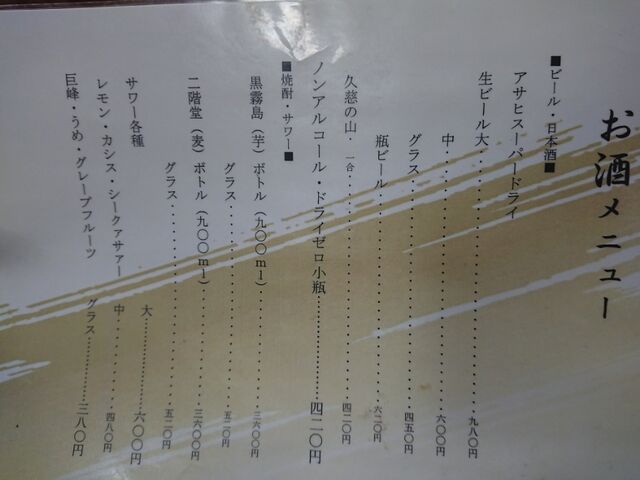 お酒メニュー
■ビール・日本酒■
アサヒスーパードライ
生ビール大・・・・・・・・・・・・・・・・・・九八〇円
中・・・・・・・・・・・・・・・・・・六〇〇円
グラス・・・・・・・・・・・・・・・・・・四五〇円
瓶ビール・・・・・・・・・・・・・・・・・・六二〇円
久慈の山・一合・・・・・・・・・・・・・・・・・・四二〇円
ノンアルコール・ドライゼロ小瓶…………四二〇円
■焼酎・サワー■
黒霧島（芋）ボトル（九〇〇ml）・・・・・・・・・三六〇〇円
グラス・・・・・・・・・・・・・・・・・・五二〇円
二階堂（麦）ボトル（九〇〇ml）・・・・・・・・・三六〇〇円
グラス・・・・・・・・・・・・・・・・・・五二〇円
サワー各種 大…………六〇〇円
レモン・カシス・シークァサァー 中・・・・・・・・・四八〇円
巨峰・うめ・グレープフルーツ グラス…………三八〇円